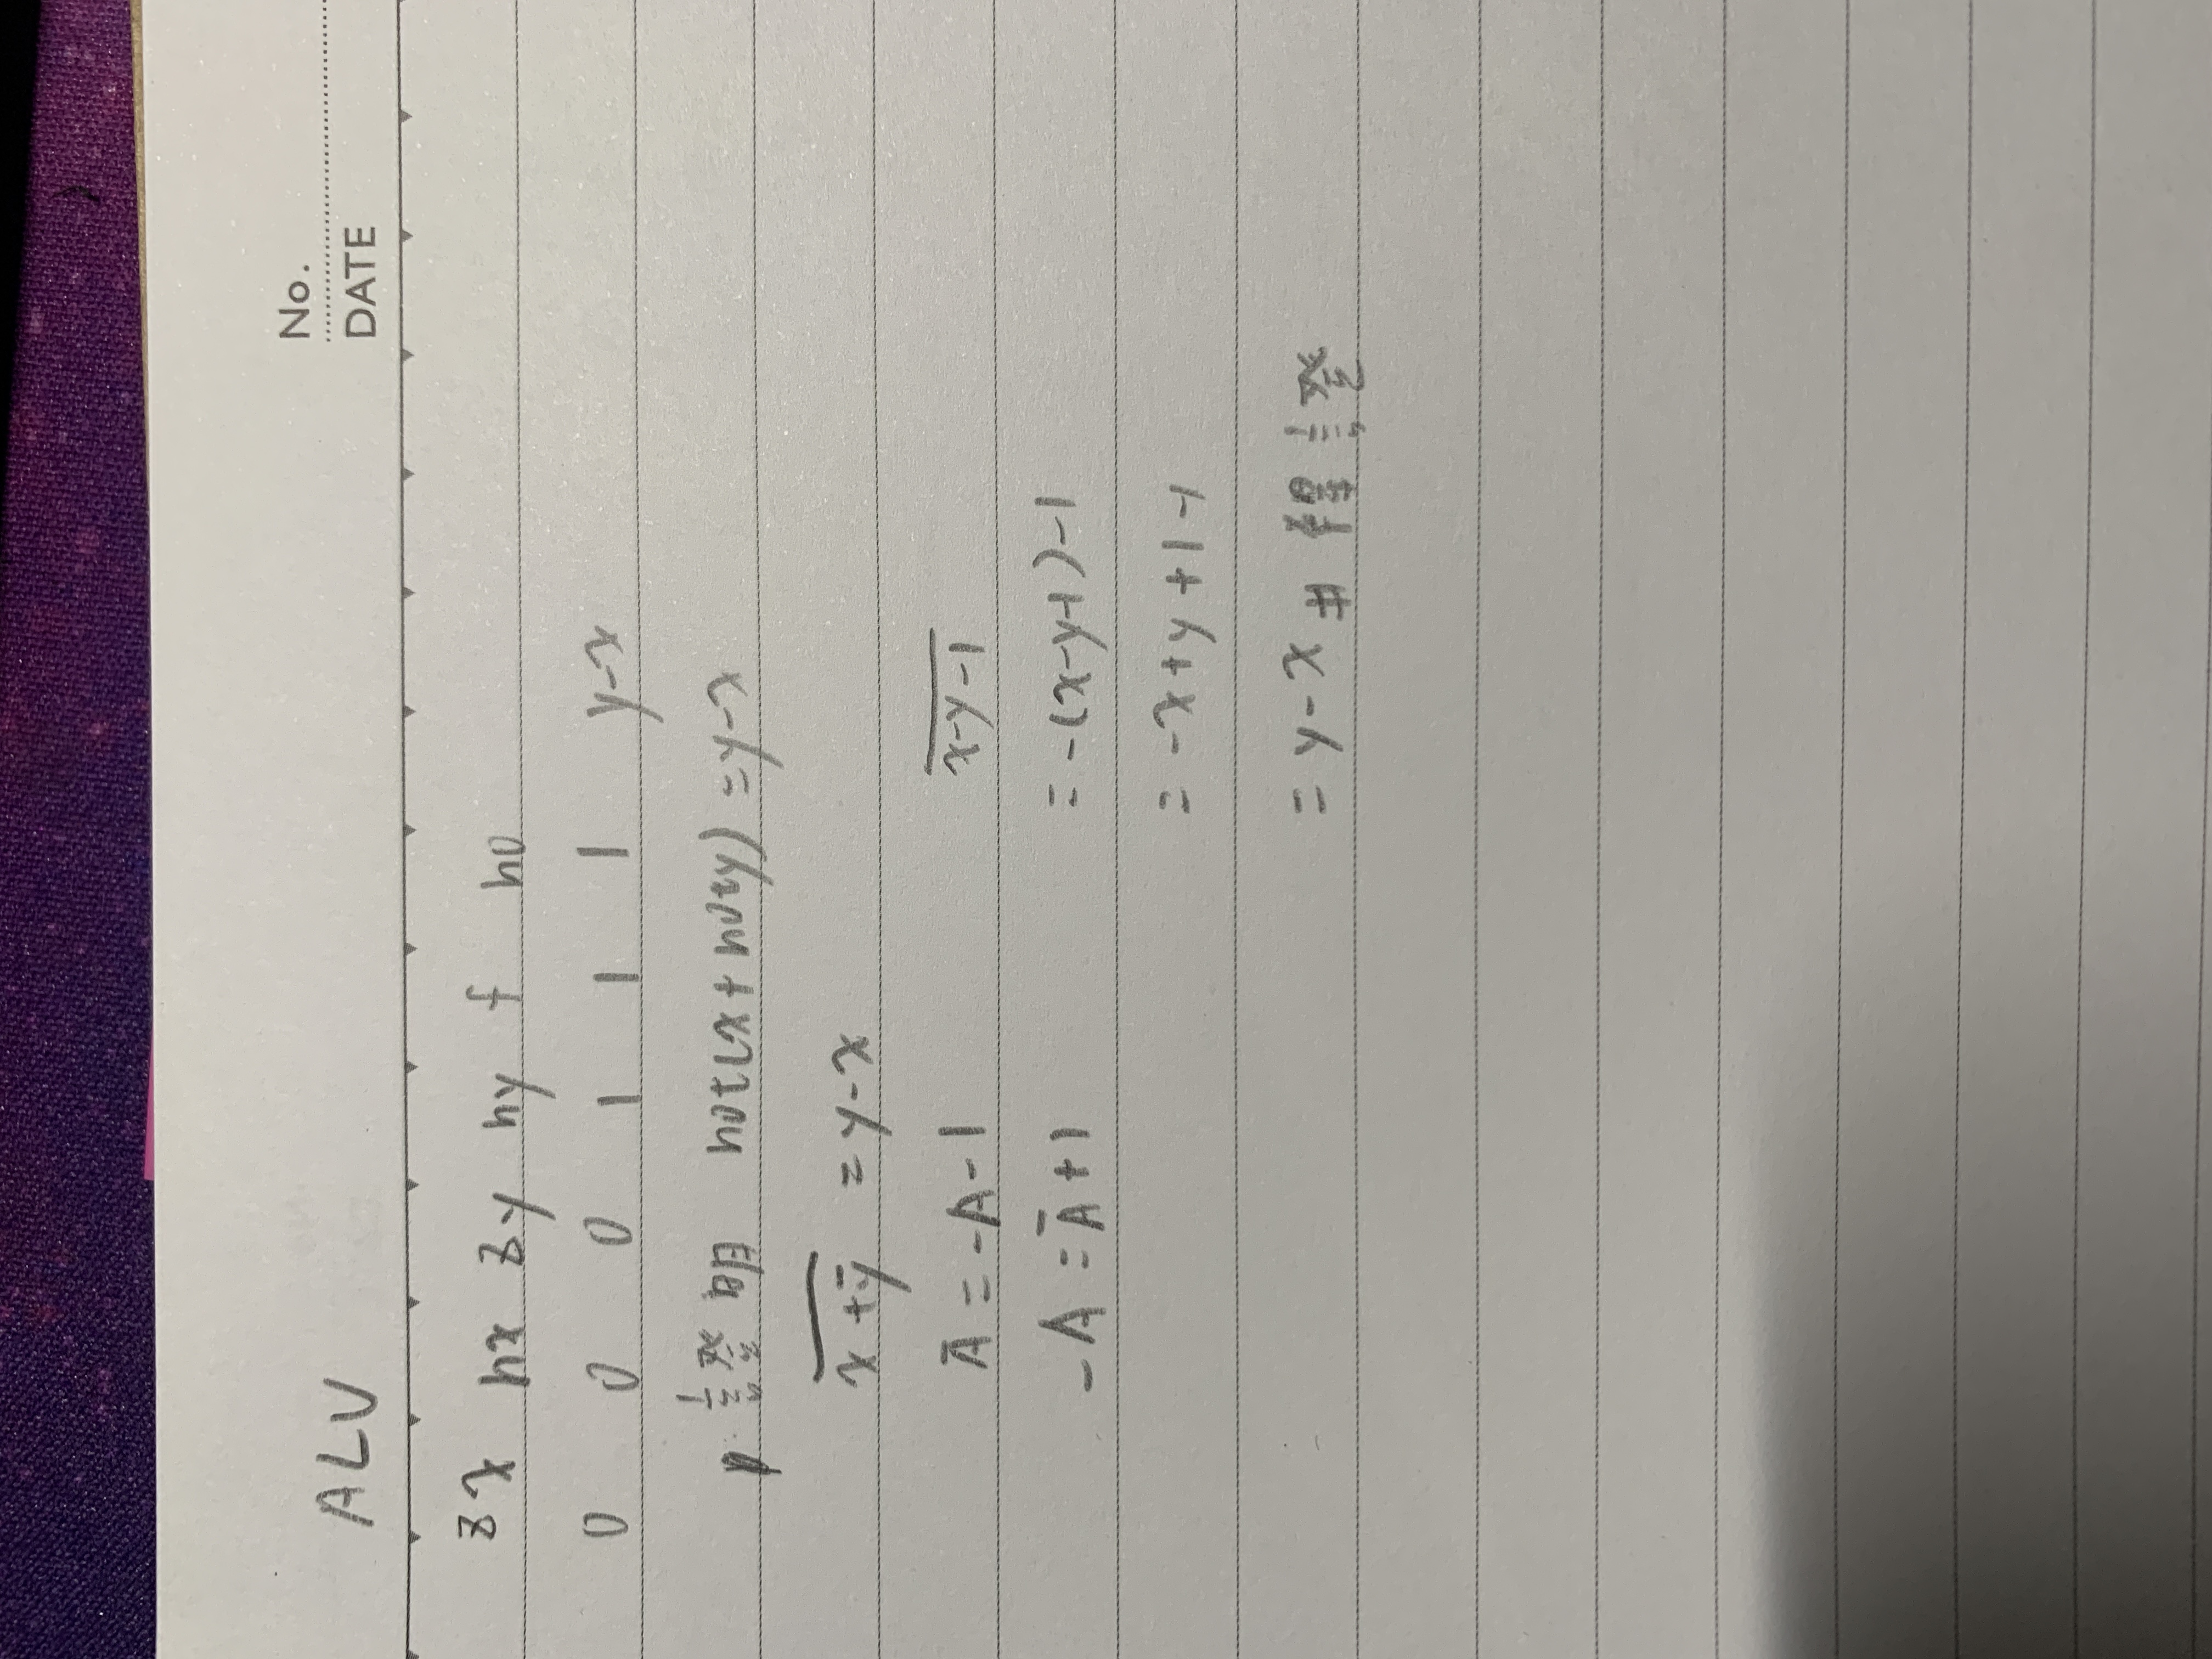 No.
DATE
ALU
zx nx zy ny f no
0 0 0 1 1 1 y-x
證明 not(x+noty)=y-x
\overline{x+\bar{y}} = y-x
Ā = -A-1
-A = Ā+1
\overline{x-y-1}
= -(x-y-1)-1
= -x+y+1-1
= y-x # 得證